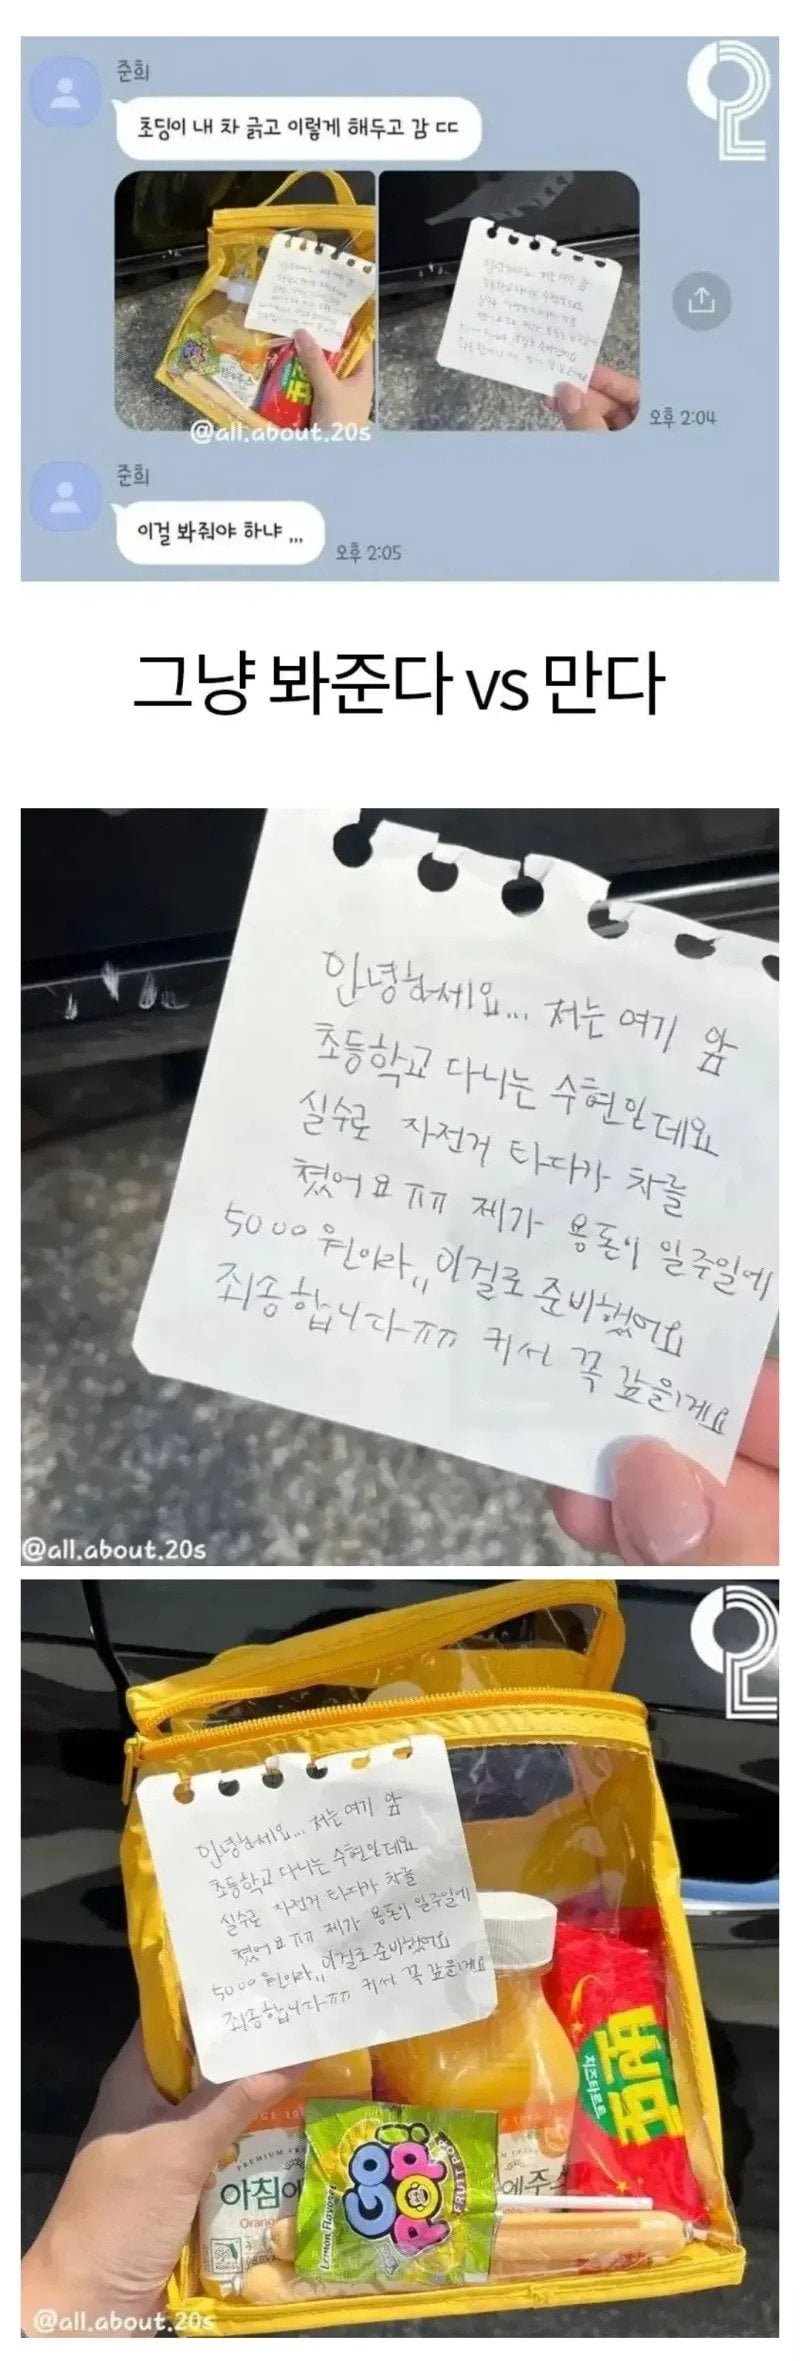 준희
초딩이 내 차 긁고 이렇게 해두고 감 ㄷㄷ
@all.about.20s
오후 2:04
준희
이걸 봐줘야 하냐 ,,,
오후 2:05
그냥 봐준다 vs 만다
안녕하세요... 저는 여기 앞
초등학교 다니는 수현인데요
실수로 자전거 타다가 차를
쳤어요 ㅠㅠ 제가 용돈이 일주일에
5000원이라,, 이걸로 준비했어요
죄송합니다ㅠㅠ 커서 꼭 갚을게요
@all.about.20s
안녕하세요... 저는 여기 앞
초등학교 다니는 수현인데요
실수로 자전거 타다가 차를
쳤어요 ㅠㅠ 제가 용돈이 일주일에
5000원이라,, 이걸로 준비했어요
죄송합니다ㅠㅠ 커서 꼭 갚을게요
치즈타르트
PREMIUM
아침에
Orang
GO!
POP
FRUIT POP
Lemon Flavor
에주스
@all.about.20s